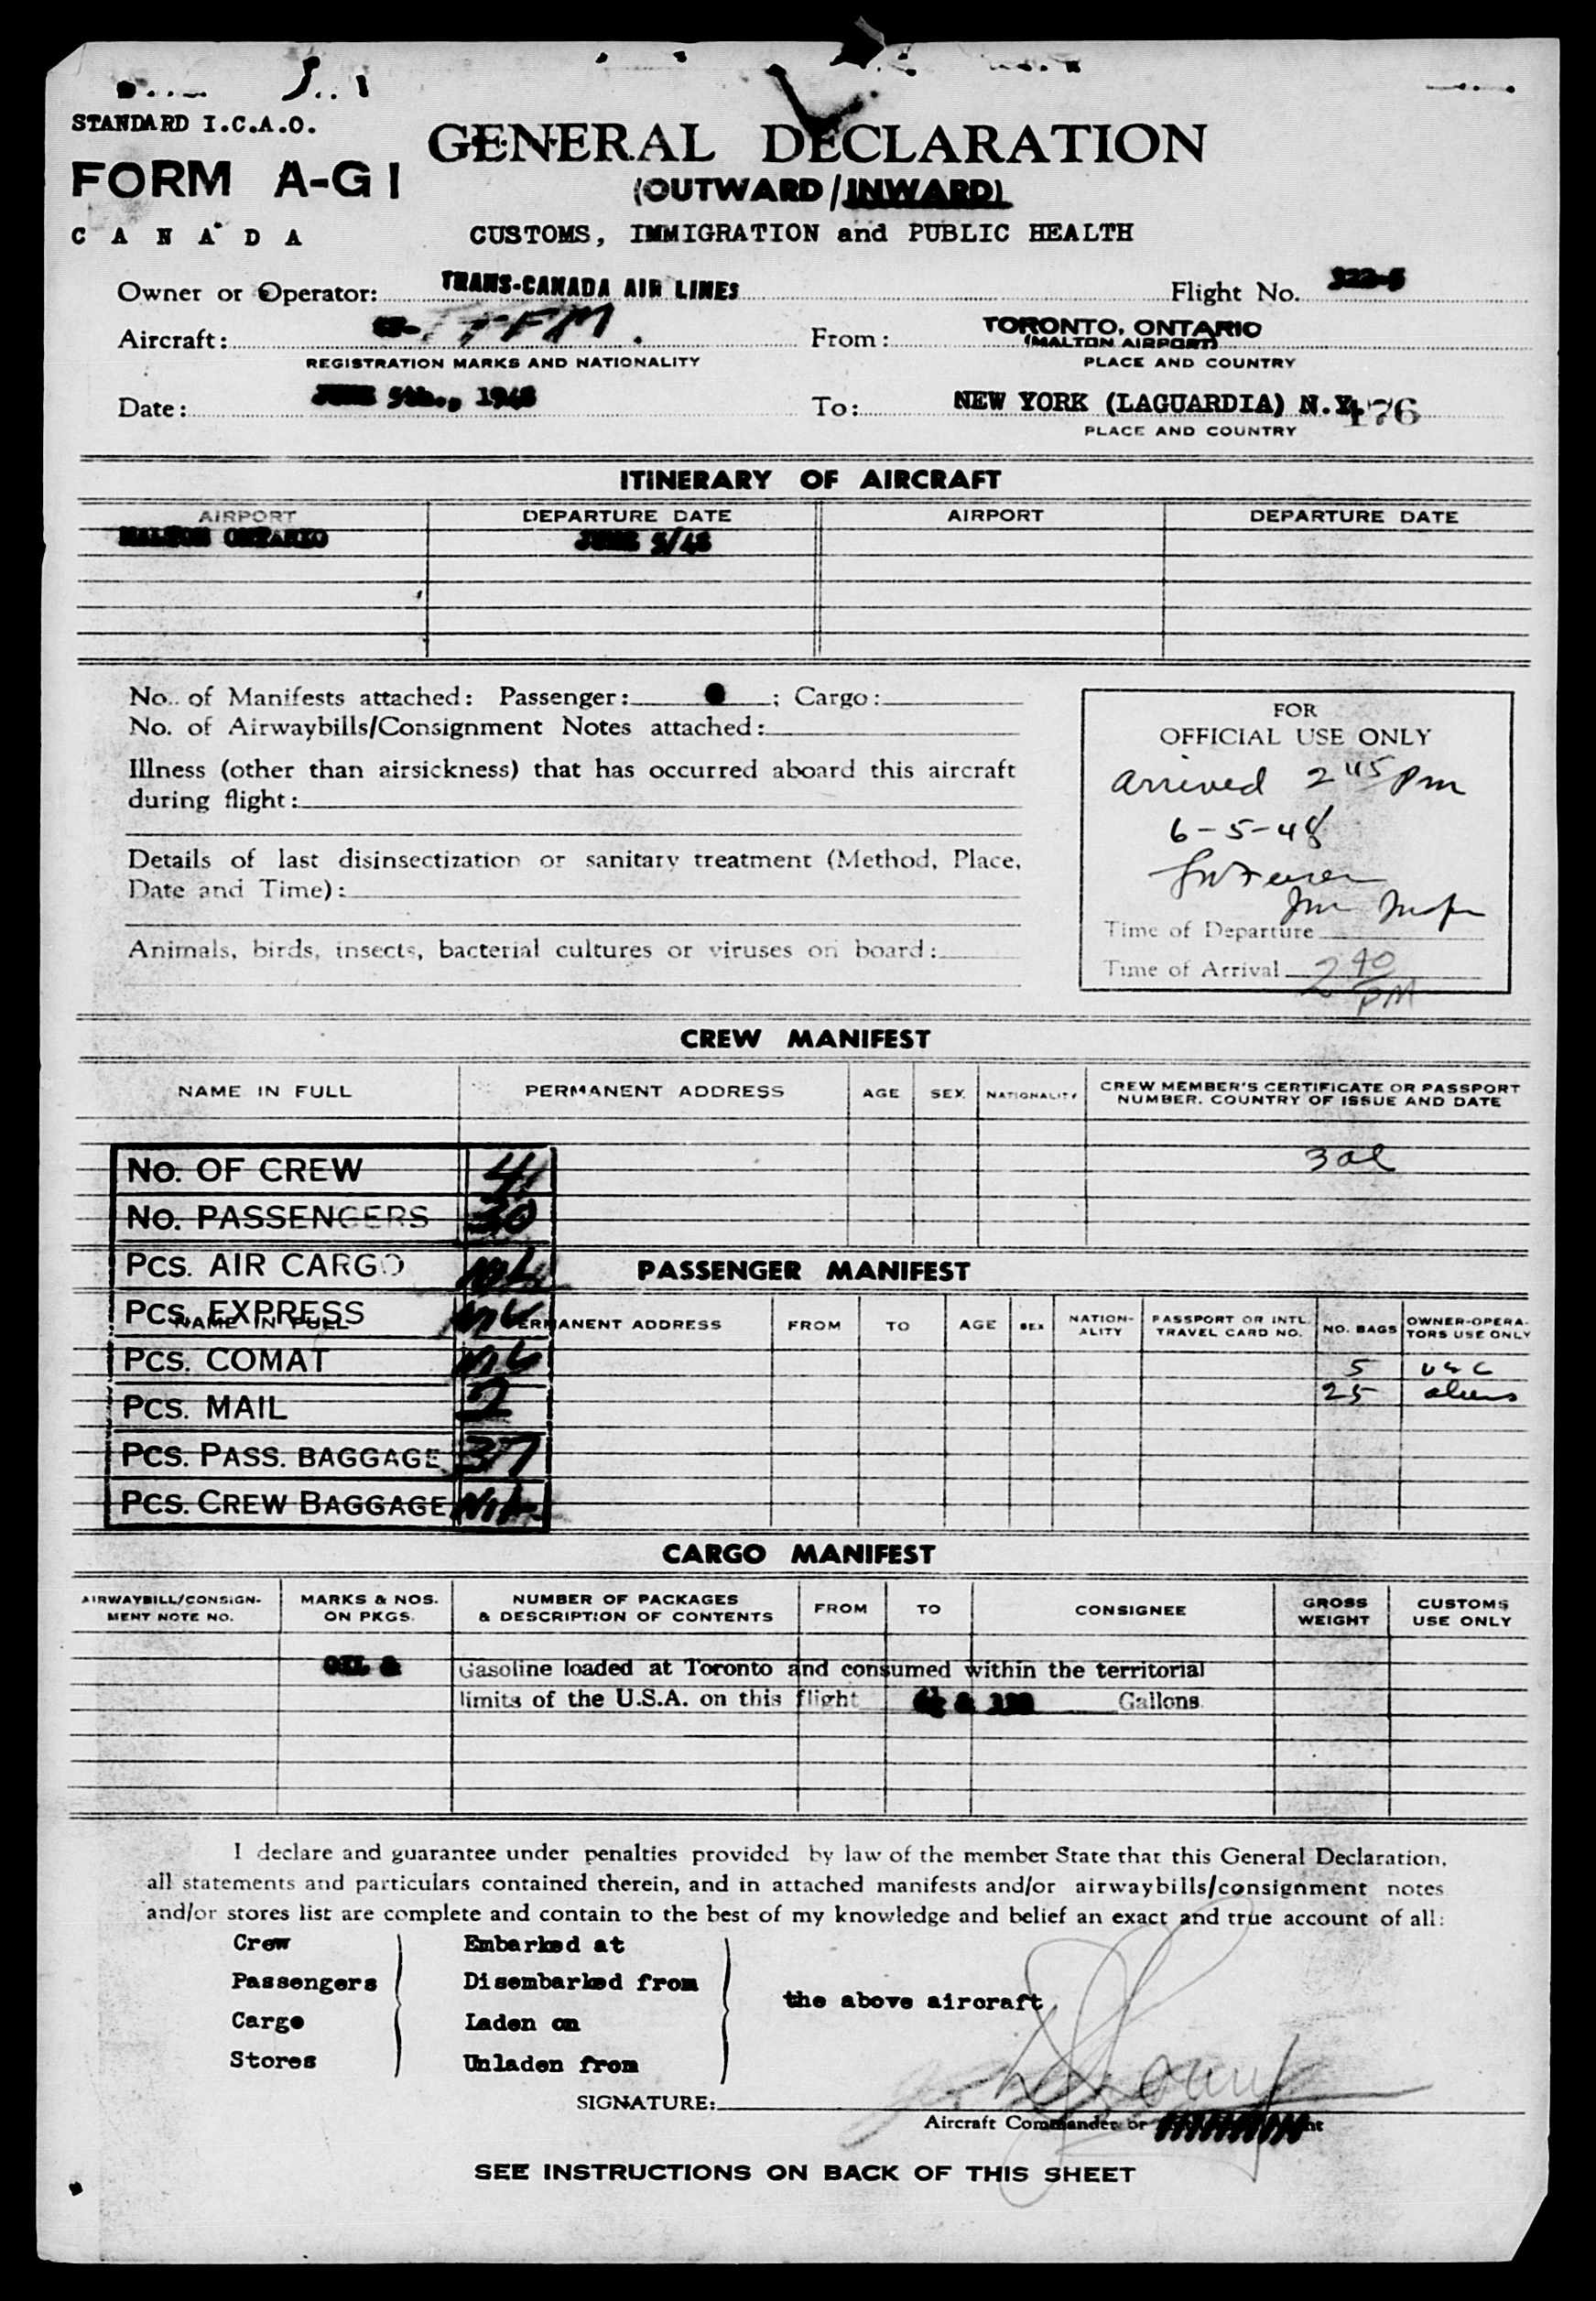 STANDARD I.C.A.O.
FORM A-G1
C A N A D A
GENERAL DECLARATION
(OUTWARD/INWARD)
CUSTOMS, IMMIGRATION and PUBLIC HEALTH
Owner or Operator: TRANS-CANADA AIR LINES Flight No.
Aircraft: From: TORONTO, ONTARIO
(MALTON AIRPORT)
REGISTRATION MARKS AND NATIONALITY PLACE AND COUNTRY
Date: JUNE 5th., 1948 To: NEW YORK (LAGUARDIA) N.Y. 176
PLACE AND COUNTRY
ITINERARY OF AIRCRAFT
AIRPORT DEPARTURE DATE AIRPORT DEPARTURE DATE
MALTON ONTARIO JUNE 5/48
No. of Manifests attached: Passenger: ; Cargo:
No. of Airwaybills/Consignment Notes attached:
Illness (other than airsickness) that has occurred aboard this aircraft
during flight:
Details of last disinsectization or sanitary treatment (Method, Place,
Date and Time):
Animals, birds, insects, bacterial cultures or viruses on board:
FOR
OFFICIAL USE ONLY
arrived 2 45 Pm
6-5-48
Time of Departure
Time of Arrival 2 40
PM
CREW MANIFEST
NAME IN FULL PERMANENT ADDRESS AGE SEX NATIONALITY CREW MEMBER'S CERTIFICATE OR PASSPORT
NUMBER. COUNTRY OF ISSUE AND DATE
No. OF CREW 4
No. PASSENGERS 30
Pcs. AIR CARGO NIL
PASSENGER MANIFEST
Pcs. EXPRESS NIL
NAME IN FULL PERMANENT ADDRESS FROM TO AGE SEX NATION-
ALITY PASSPORT OR INTL.
TRAVEL CARD NO. NO. BAGS OWNER-OPERA-
TORS USE ONLY
Pcs. COMAT NIL 5 USC
Pcs. MAIL 2 25 aliens
Pcs. PASS. BAGGAGE 37
Pcs. CREW BAGGAGE NIL
CARGO MANIFEST
AIRWAYBILL/CONSIGN-
MENT NOTE NO. MARKS & NOS.
ON PKGS. NUMBER OF PACKAGES
& DESCRIPTION OF CONTENTS FROM TO CONSIGNEE GROSS
WEIGHT CUSTOMS
USE ONLY
OIL & Gasoline loaded at Toronto and consumed within the territorial
limits of the U.S.A. on this flight Gallons.
I declare and guarantee under penalties provided by law of the member State that this General Declaration,
all statements and particulars contained therein, and in attached manifests and/or airwaybills/consignment notes
and/or stores list are complete and contain to the best of my knowledge and belief an exact and true account of all:
Crew Embarked at
Passengers Disembarked from
the above aircraft
Cargo Laden on
Stores Unladen from
SIGNATURE:
Aircraft Commander or
SEE INSTRUCTIONS ON BACK OF THIS SHEET